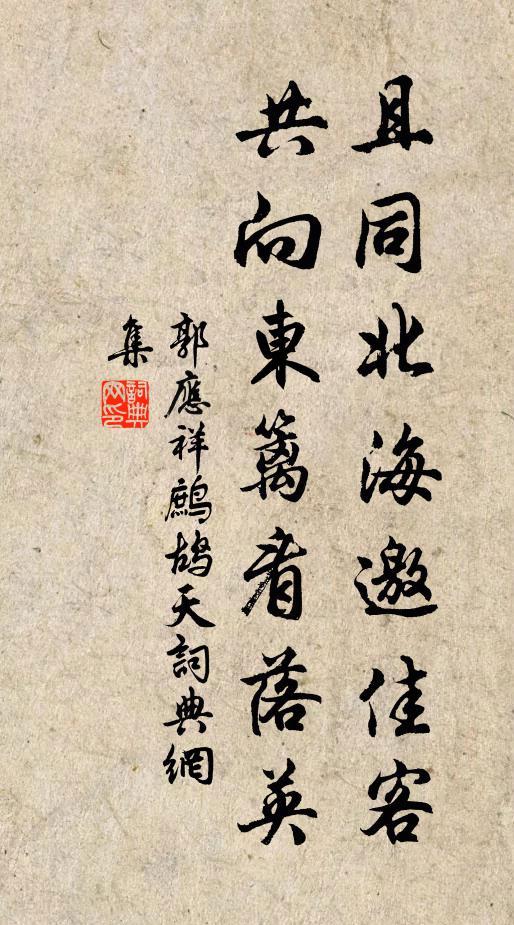 且同北海邀佳客
共向東籬看落英
郭應祥鷓鴣天詞典網
集
詞典網印